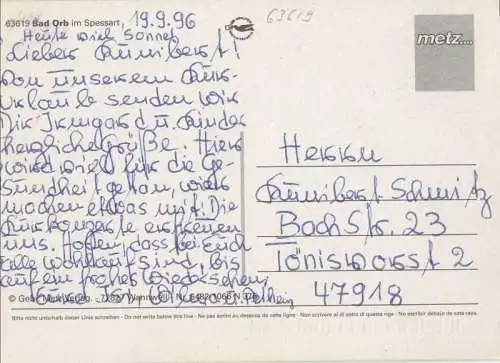 63619 Bad Orb im Spessart, 19.9.96
63619
Heute viel Sonne!
Lieber Kunibert!
Von unserem Kur-
urlaub senden wir
Dir Irmgard u. Kinder
herzliche Grüße. Hier
wird viel für die Ge-
sundheit getan, wir
machen etwas mit. Die
Kurkonzerte erfreuen
uns. Hoffen, dass bei Euch
alle wohlauf sind, bis
auf ein frohes Wiedersehen
metz....
Herrn
Kunibert Schmitz
Bachstr. 23
Tönisvorst 2
47918
Bitte nicht unterhalb dieser Linie schreiben - Do not write below this line - Ne pas écrire au dessous de cette ligne - Non scrivere al di sotto di questa riga - No escribir debajo de esta raya.